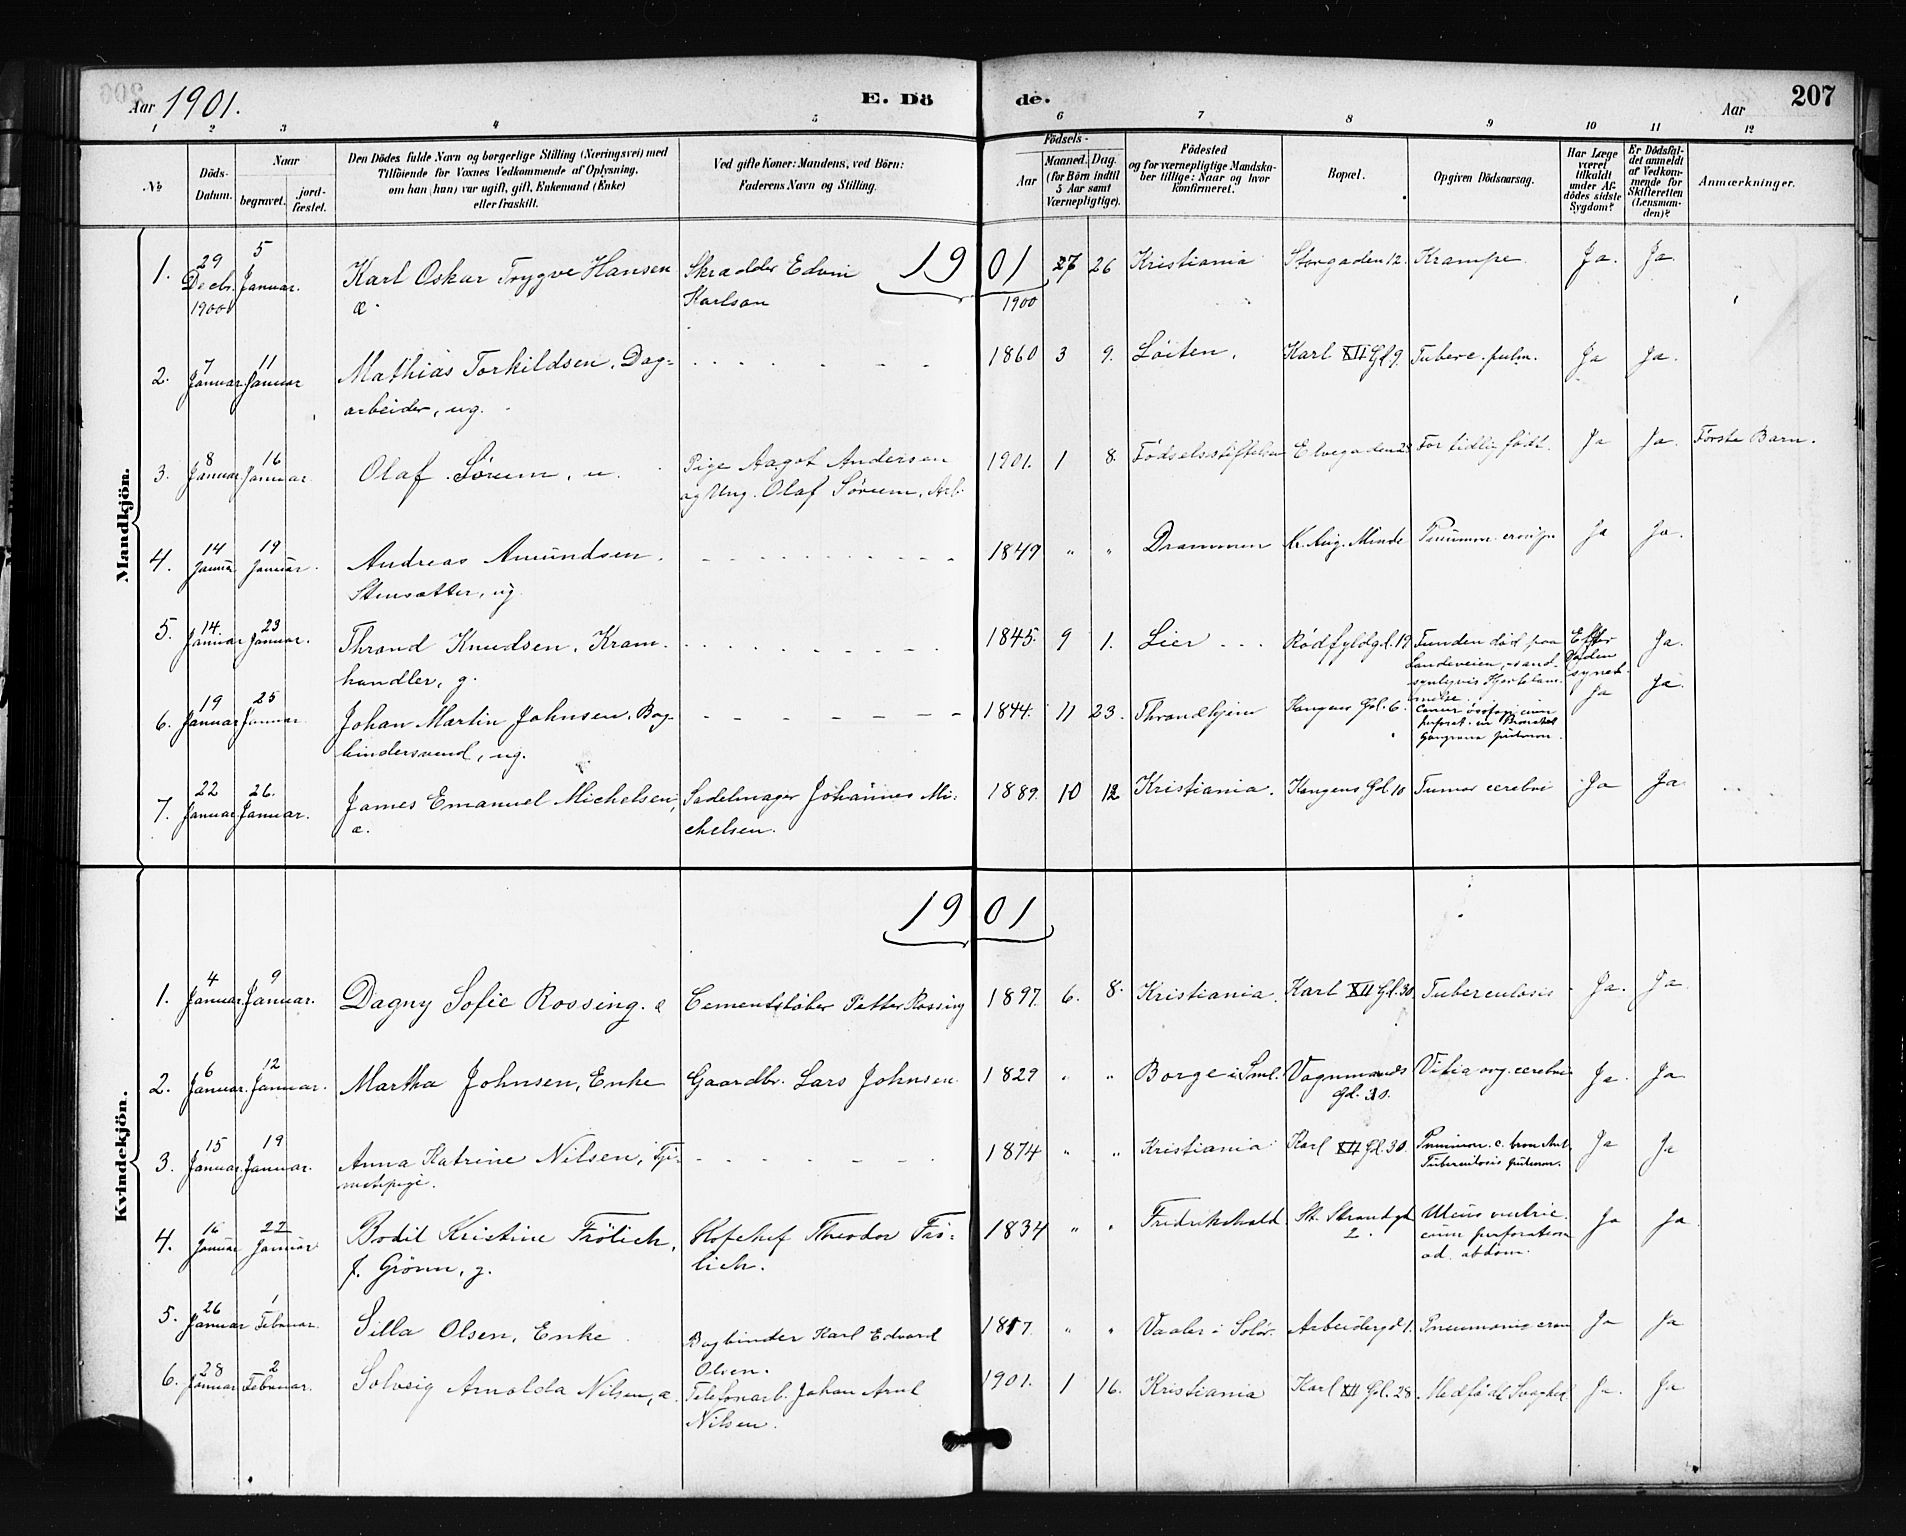 Aar 1901. E. Dö de. Aar 207
1 2 3 4 5 6 7 8 9 10 11 12
No
Döds-Datum.
Naar
begravet.
jord-fæstet.
Den Dödes fulde Navn og borgerlige Stilling (Næringsvei) med
Tilföiende for Voxnes Vedkommende af Oplysning,
om han (hun) var ugift, gift, Enkemand (Enke)
eller fraskilt.
Ved gifte Koner: Mandens, ved Börn:
Faderens Navn og Stilling.
Födsels-
Aar
Maaned. Dag.
(for Börn indtil
5 Aar samt
Værnepligtige).
Födested
og for værnepligtige Mandska-
ber tillige: Naar og hvor
konfirmeret.
Bopæl.
Opgiven Dödsaarsag.
Har Læge
været
tilkaldt
under Af-
dödes sidste
Sygdom?
Er Dödsfal-
det anmeldt
af Vedkom-
mende for
Skifteretten
(Lensman-
den)?
Anmærkninger.
Mandkjön.
1901
1. 29 Decbr. 1900 5 Januar. Karl Oskar Trygve Hansen Skrædder Edvin 27 26 Kristiania Storgaden 12. Krampe Ja. Ja.
æ. Karlson 1900
2. 7 Januar 11 Januar Mathias Torkildsen, Dag- 1860 3 9. Löiten. Karl XII Gd 9. Tuberc. pulm. Ja Ja.
arbeider, ug.
3. 8 Januar. 16 Januar. Olaf Sörum, u. Pige Aagot Andersen 1901. 1 8. Födselsstiftelsen Elvegaden For tidlig födt. Ja Ja. Förste Barn.
og Ung. Olaf Sörum, Arb.
4. 14 Januar 19 Januar. Andreas Amundsen. 1849 " " Drammen Kr. Aug. Minde Ja Ja.
Stensætter, ug.
5. 14 Januar 23 Januar. Thrond Knudsen, Kram- 1845. 9 1. Lier Rödfyldgd. 19 Funden död paa Efter Ja.
handler, g. Landeveien, sand- Döden
synligvis Hjertelam- synet.
melse.
6. 19 Januar 25 Januar. Johan Martin Johnsen, Bog- 1844. 11 23. Throndhjem Kongens Gd. 6. Ja Ja.
bindersvend, ug.
7. 22 Januar 26. Januar. James Emanuel Michelsen, Sadelmager Johannes Mi- 1889. 10 12 Kristiania. Kongens Gd 10 Tumor cerebri Ja Ja.
æ. chelsen.
Kvindekjön.
1901
1. 4 Januar. 9 Januar. Dagny Sofie Rossing. æ Cementstöber Petter Rossing 1897. 6. 8. Kristiania. Karl XII Gd. 30 Tuberculosis Ja. Ja
2. 6 Januar. 12 Januar. Martha Johnsen, Enke Gaardbr. Lars Johnsen. 1829 " " Borge i Sml. Vognmands Vitia org. cerebri Ja. Ja
Gd. 30.
3. 15 Januar. 19 Januar. Anna Katrine Nilsen, Tje- 1874 " " Kristiania Karl XII Gd. 30. Ja Ja
nestepige. Tuberculosis pulmon.
4. 16 Januar 22 Januar Bodil Kristine Frölich, Kofchef Theodor Frö- 1834 " " Fredrikshald St. Strandgd Ulcus ventric. Ja Ja
f. Grönn, g. lich. 2. cum perforation
ad. abdom.
5. 26 Januar 1 Februar. Silla Olsen, Enke Bogbinder Karl Edvard 1817. " " Vaaler i Solör. Arbeidergd 1. Pneumonia cron Ja Ja
Olsen.
6. 28 Januar 2 Februar. Solveig Arnolda Nilsen, æ. Telefonarb. Johan Arnt 1901. 1 16. Kristiania Karl XII Gd. 28 Medfödt Svaghed Ja. Ja
Nilsen.